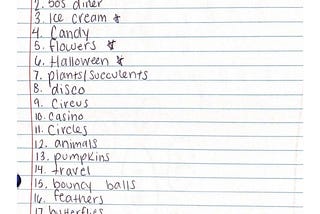 2. 50s diner
3. Ice cream ☆
4. Candy
5. flowers ☆
6. Halloween ☆
7. plants/succulents
8. disco
9. Circus
10. casino
11. Circles
12. animals
13. pumpkins
14. travel
15. bouncy balls
16. feathers
17. butterflies